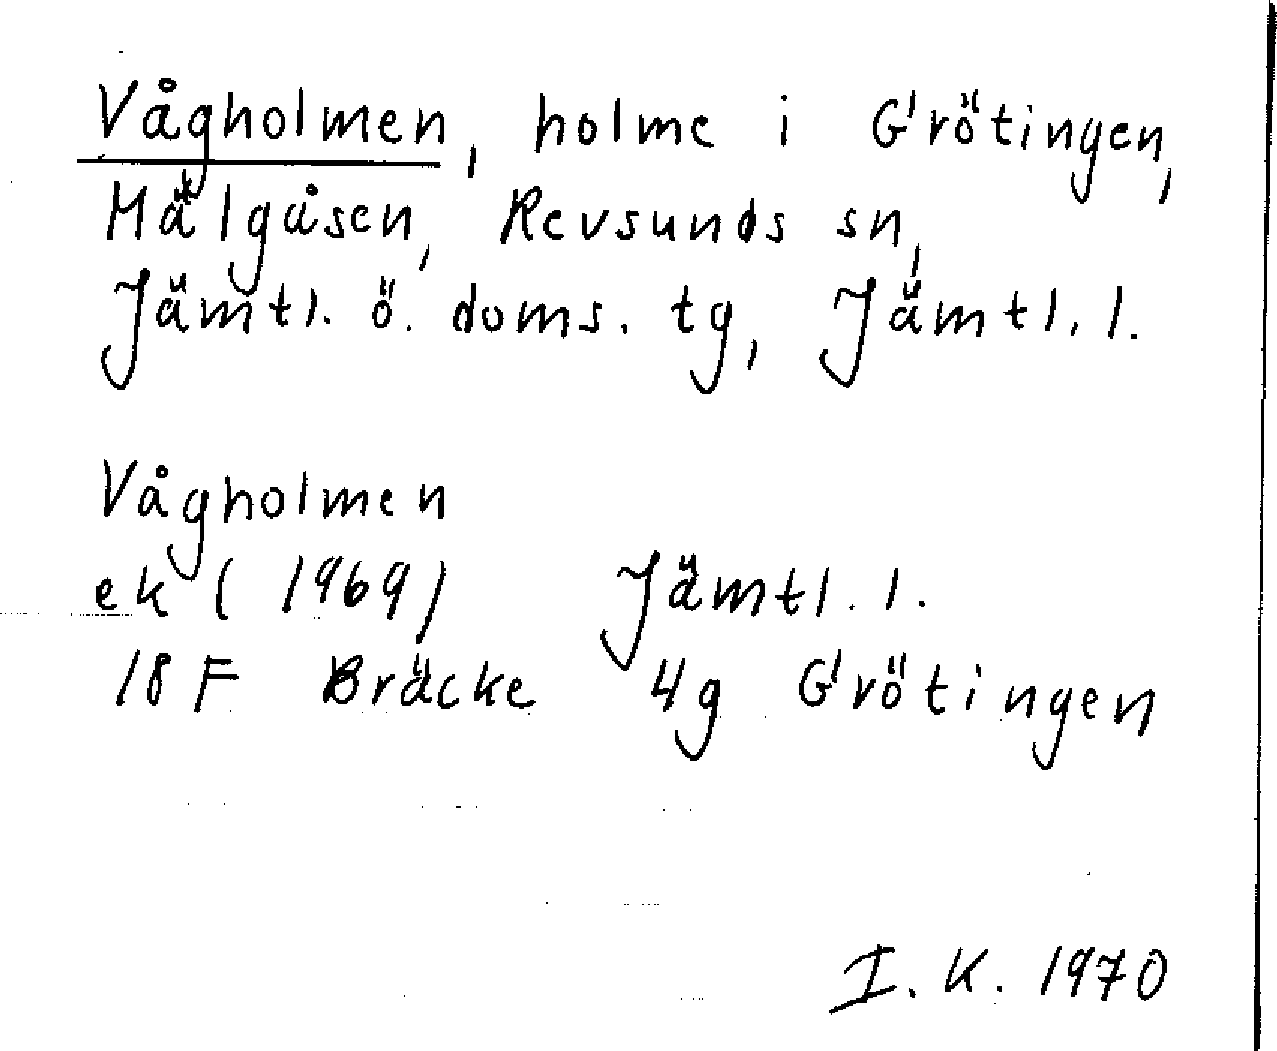 Vågholmen, holme i Grötingen,
Mälgåsen, Revsunds sn,
Jämtl. ö. doms. tg, Jämtl. l.
Vågholmen
ek (1969) Jämtl. l.
18 F Bräcke 4g Grötingen
I. K. 1970